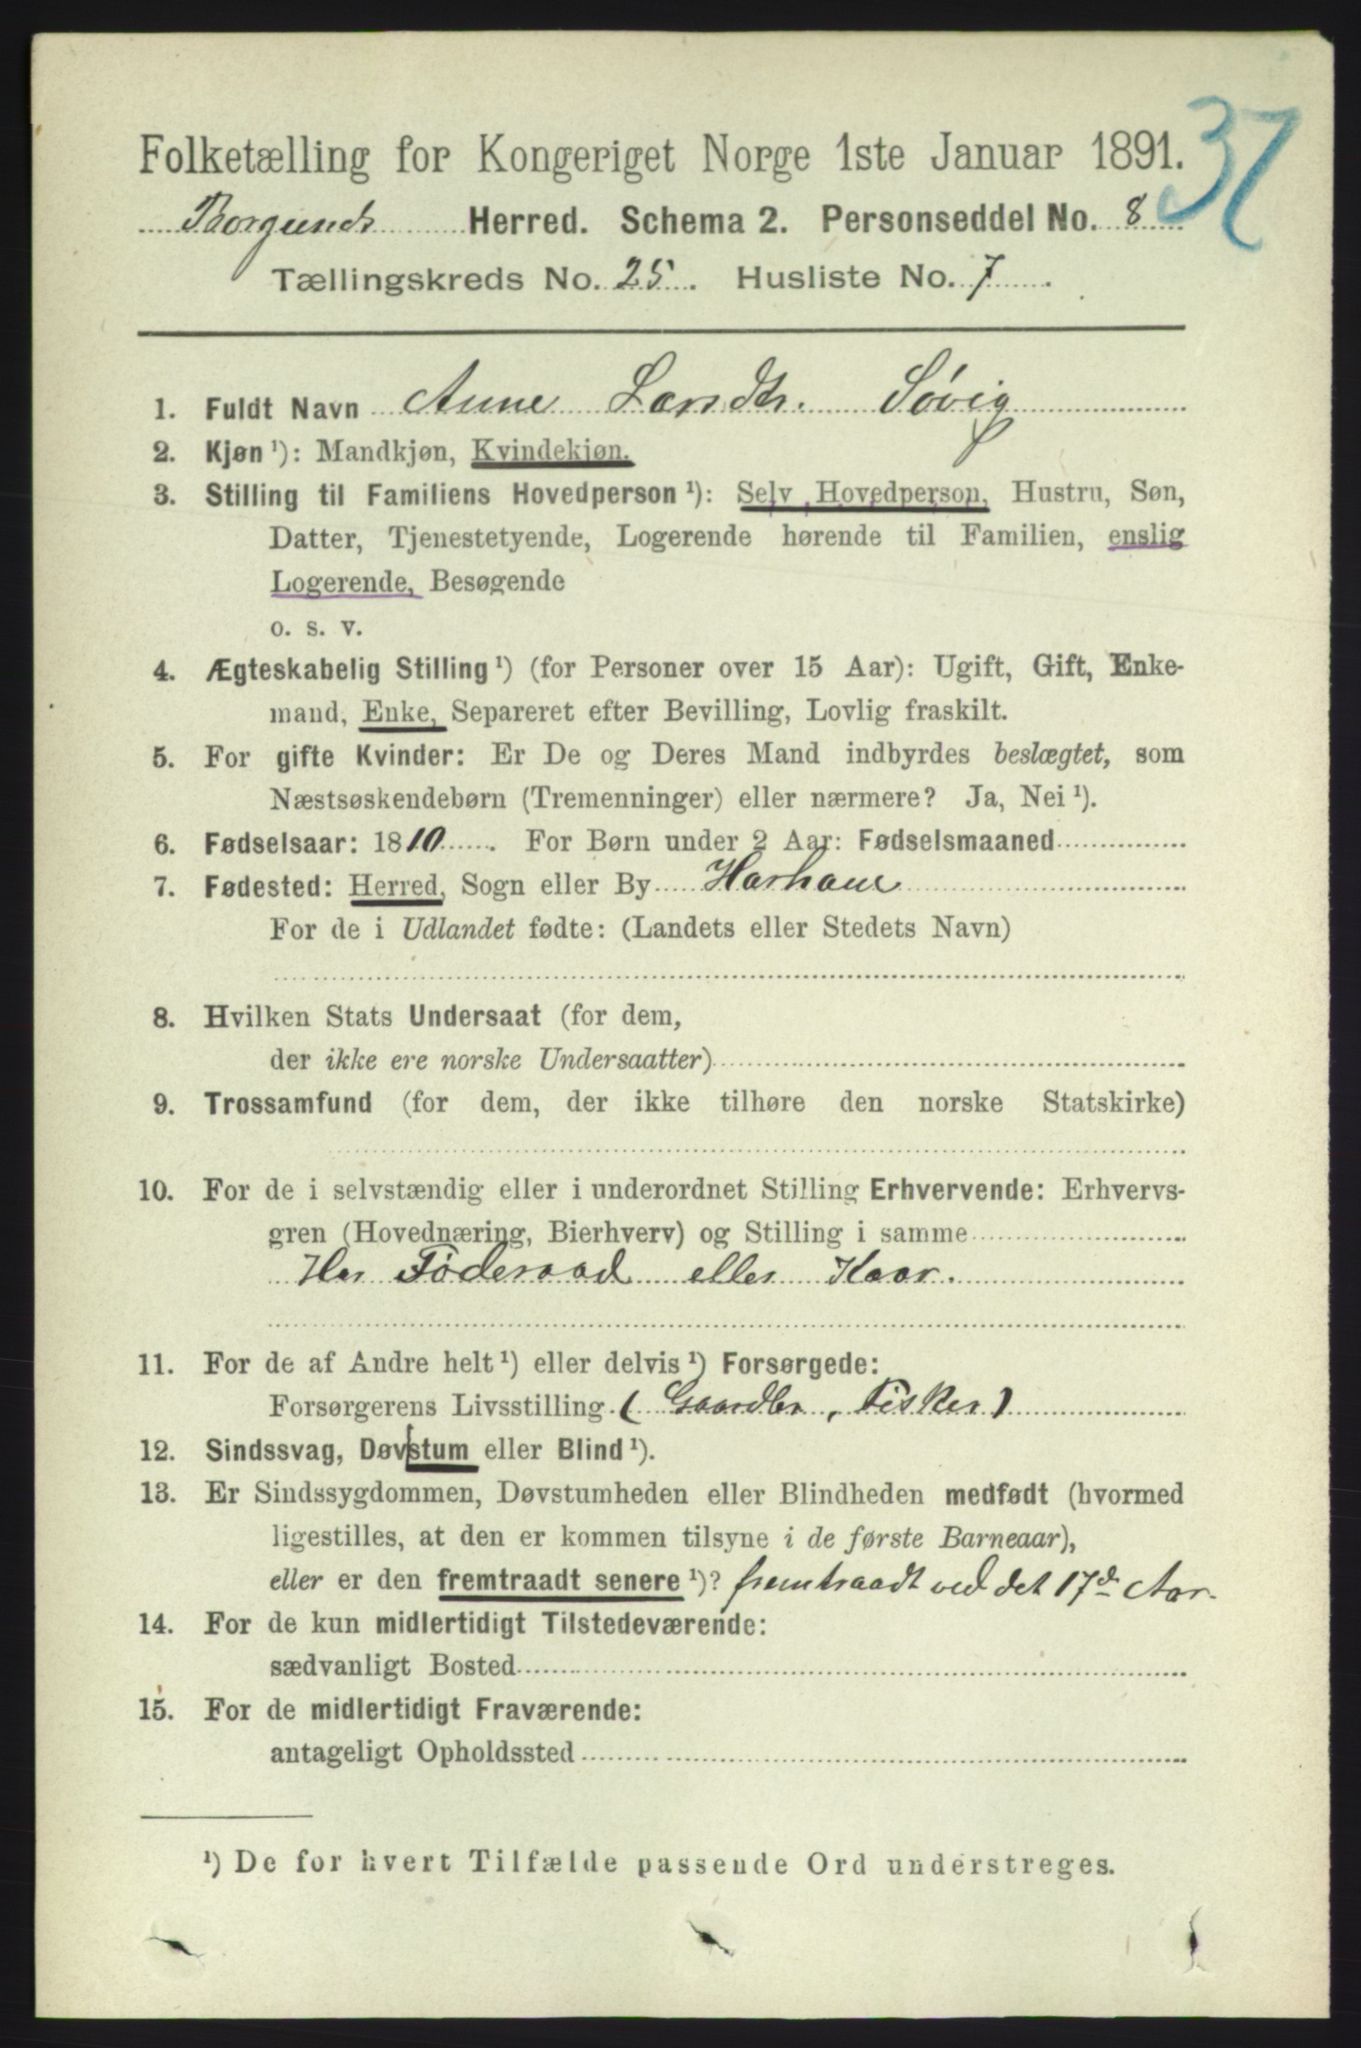 37
Folketælling for Kongeriget Norge 1ste Januar 1891.
Borgund Herred. Schema 2. Personseddel No. 8
Tællingskreds No. 25. Husliste No. 7.
1. Fuldt Navn Anne Larsdtr. Søvig
2. Kjøn ¹): Mandkjøn, Kvindekjøn.
3. Stilling til Familiens Hovedperson ¹): Selv Hovedperson, Hustru, Søn,
Datter, Tjenestetyende, Logerende hørende til Familien, enslig
Logerende, Besøgende
o. s. v.
4. Ægteskabelig Stilling ¹) (for Personer over 15 Aar): Ugift, Gift, Enke-
mand, Enke, Separeret efter Bevilling, Lovlig fraskilt.
5. For gifte Kvinder: Er De og Deres Mand indbyrdes beslægtet, som
Næstsøskendebørn (Tremenninger) eller nærmere? Ja, Nei ¹).
6. Fødselsaar: 1810. For Børn under 2 Aar: Fødselsmaaned
7. Fødested: Herred, Sogn eller By Harham
For de i Udlandet fødte: (Landets eller Stedets Navn)
8. Hvilken Stats Undersaat (for dem,
der ikke ere norske Undersaatter)
9. Trossamfund (for dem, der ikke tilhøre den norske Statskirke)
10. For de i selvstændig eller i underordnet Stilling Erhvervende: Erhvervs-
gren (Hovednæring, Bierhverv) og Stilling i samme
Har Føderaad eller Kaar.
11. For de af Andre helt ¹) eller delvis ¹) Forsørgede:
Forsørgerens Livsstilling (Gaardbr, Fisker)
12. Sindssvag, Døvstum eller Blind ¹).
13. Er Sindssygdommen, Døvstumheden eller Blindheden medfødt (hvormed
ligestilles, at den er kommen tilsyne i de første Barneaar),
eller er den fremtraadt senere ¹)? fremtraadt ved det 17de Aar.
14. For de kun midlertidigt Tilstedeværende:
sædvanligt Bosted
15. For de midlertidigt Fraværende:
antageligt Opholdssted
¹) De for hvert Tilfælde passende Ord understreges.